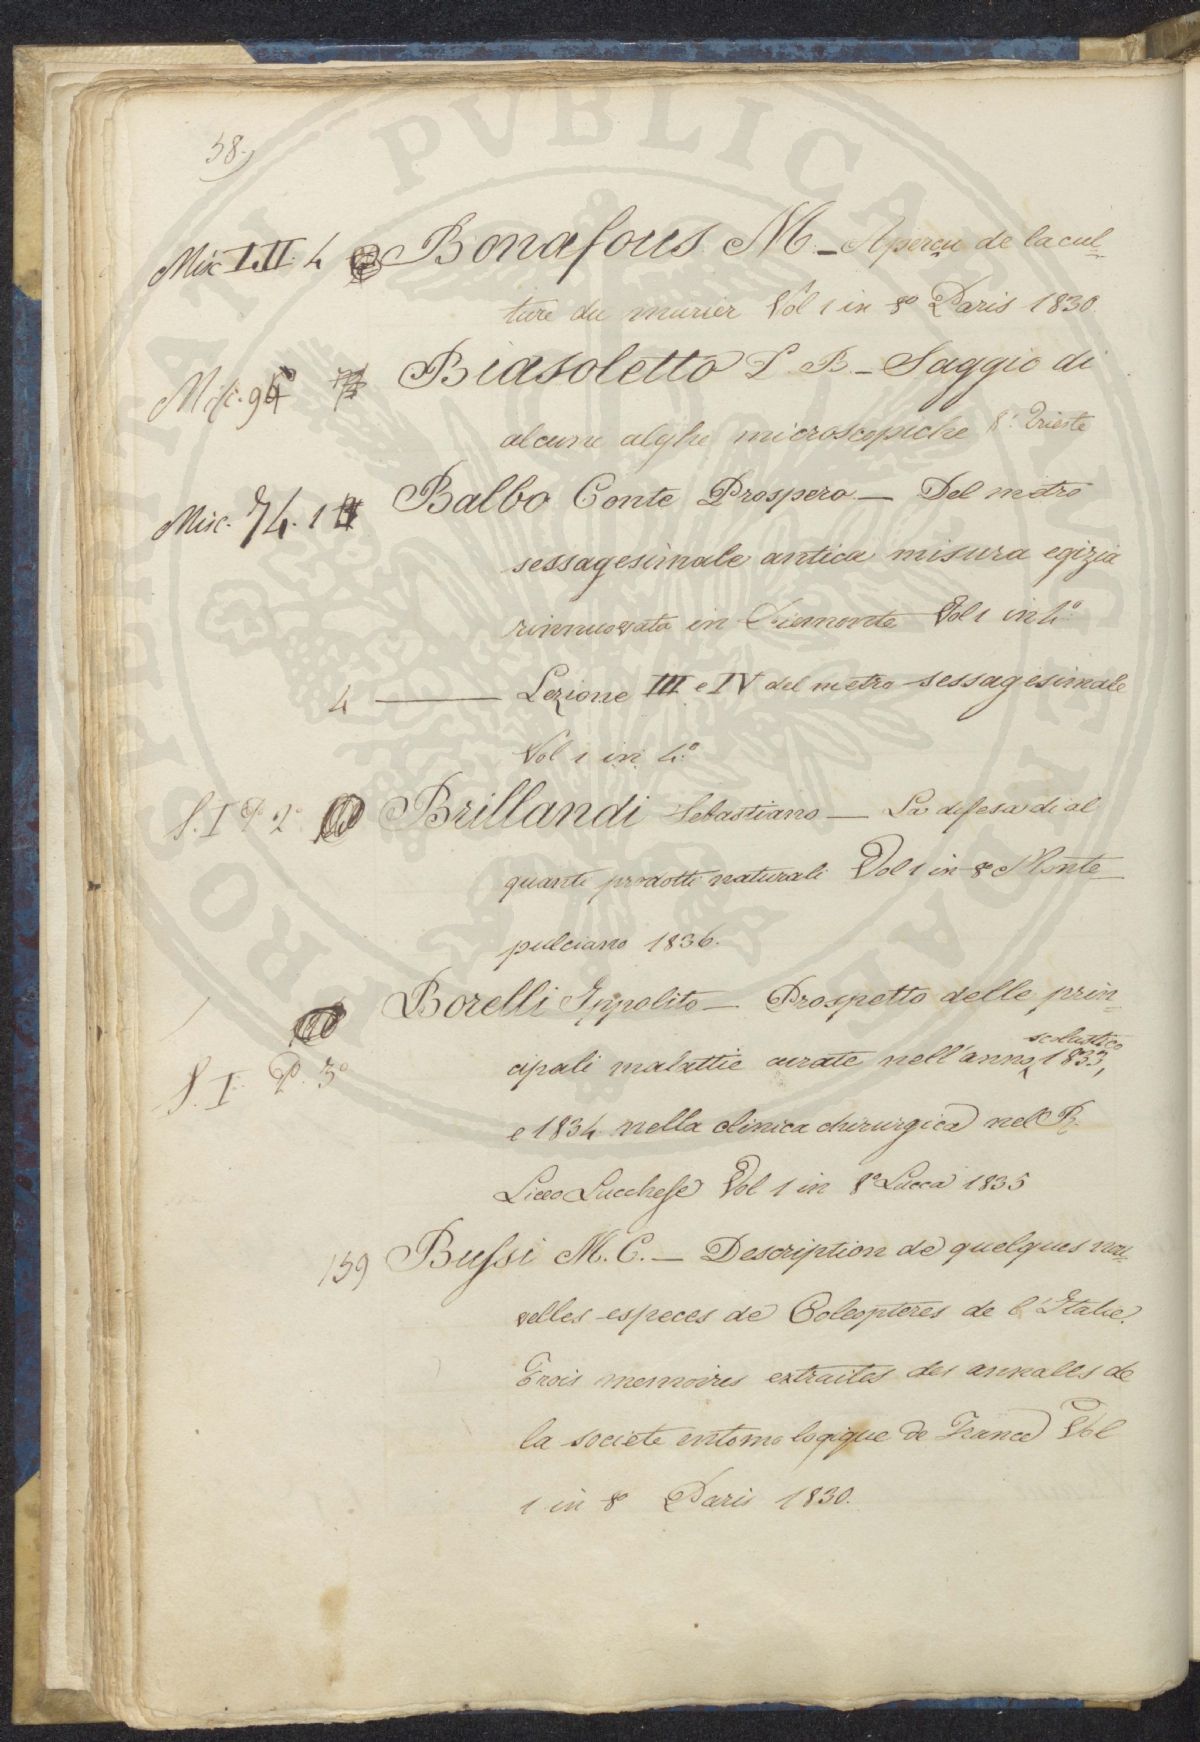 58.
Misc I.II. 4 Bonafous M. _ Aperçu de la cul-
ture du murier Vol 1 in 8º Paris 1830.
Misc. 94 Biasoletto B. _ Saggio di
alcune alghe microscopiche 8º Trieste
Misc. 74. 1 Balbo Conte Prospero _ Del metro
sessagesimale antica misura egizia
rinnuovata in Piemonte Vol 1 in 4º
4 ___ Lezione III e IV del metro sessagesimale
Vol 1 in 4º
S. I P. 2º Brillandi Sebastiano _ La difesa di al
quanti prodotti naturali Vol 1 in 8º Monte
pulciano 1836.
Borelli Ippolito _ Prospetto delle prin-
scolastico
S. I. P. 3º cipali malattie curate nell'anno 1833,
e 1834 nella clinica chirurgica nel R.
Liceo Lucchese Vol 1 in 8º Lucca 1835
159 Bussi M. C. _ Description de quelques nou-
velles especes de Coleopteres de l'Italie.
Trois memoires extraites des annales de
la societe entomologique de France Vol
1 in 8º Paris 1830.
PROPRIETATI PVBLICAE